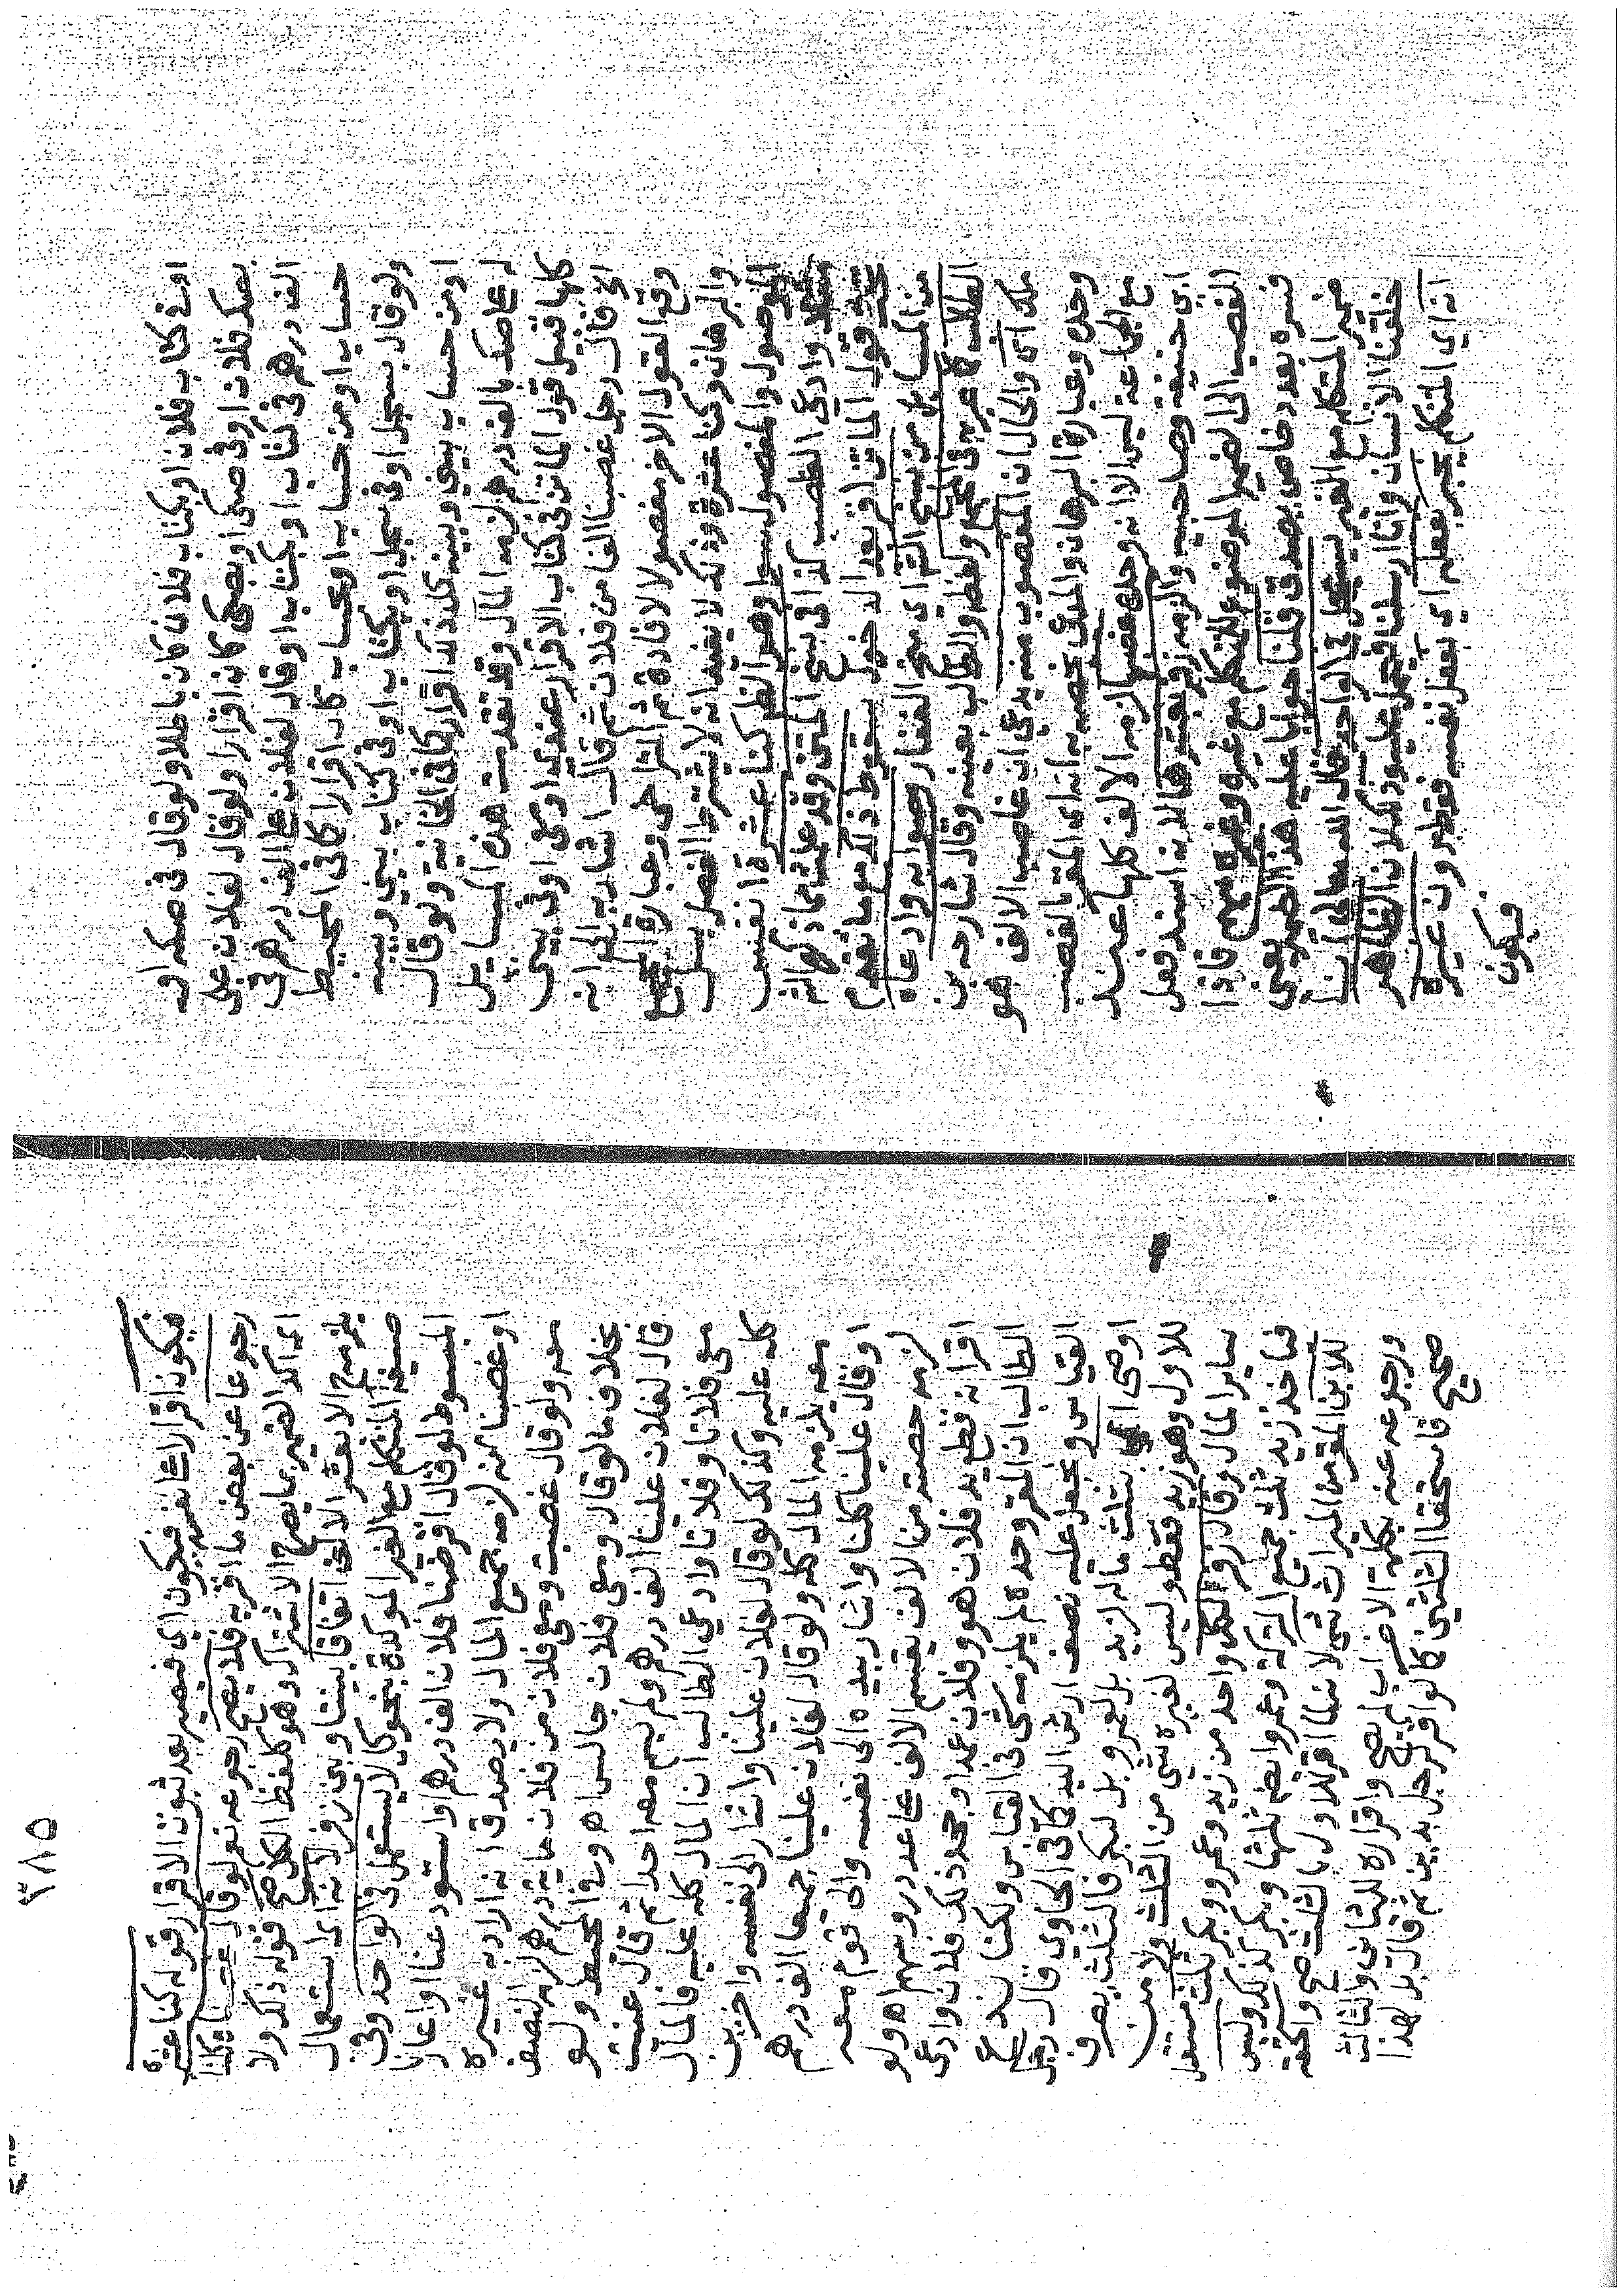 او في كتاب فلان او بكتاب فلان كان باطلا ولو قال في صكه او
بصك فلان او في صكي او بصكي كان اقرارا ولو قال لفلان على
الف درهم في كتاب او بكتاب او قال لفلان على الف درهم في
حساب او من حساب او بحساب كان اقرارا كما في المحيط
ولو قال بسجل او في سجل او بكتاب او في كتاب بيني وبينه
او من حساب بيني وبينه كل ذلك اقرار كما في الخانية ولو قال
له على صك بالف درهم لزمه المال وقد تقدمت هذه المسايل
كلها قبيل قول الماتن في كتاب الاقرار عندي او معي او في بيتي
اي قال رجل غصبنا الفا من فلان ثم قال اشار به الى انه
وقع القول الاخر مفصولا لافادة ثم التراخي وعبارة المجمع
والبرهان وكنا عشرة وذلك لا يفيد انه لا يشترط الفصل بل
الموصول والمفصول سوا وهو الظاهر كنا عشرة انفس
مثلا وادعى الطالب كذا في نسخ المتن وقد علمت مما ذكرناه
تحت قول الماتن اقر بعد الدخول سقوط ذكره مما تقدم
من المسايل من نسخ الشرح اي منح الغفار وصوابه وادعاه
الطالب كما عبر به في المجمع ولفظه والطالب بعينه وقال شارحه بن
ملك اي والحال ان المغصوب منه يدعي ان غاصب الالف هو
وحده وعبارة البرهان والمدعي يخصه به انه اي المقر بالغصب
مع الجماعة ليس الا انه هو وحده غصبها لزمه الالف كلها عند
ابي حنيفة وصاحبيه والزمه زفر بعشرها لانه اسند فعل
الغصب الى الضمير الموضوع للمتكلم مع غيره وغيره مبهم فاذا
فسره بعدد خاص يصدق قلنا جوابا عليه هذا الضمير يعني
ضمير المتكلم مع الغير يستعمل في الواحد قال الله تعالى انا
خلقنا الانسان وانا ارسلنا فيحمل عليه وذلك لان الظاهر
انه اي المتكلم يخبر بفعله اي بفعل نفسه فقط دون غيره
فيكون
٢٨٥
فيكون اقرارا على نفسه فيكون اي فيصير بعد ثبوت الاقرار قوله كنا عشرة
رجوعا عن بعض ما اقر به فلا يصح رجوعه نعم لو قال غصبنا كلنا
اي اكد الضمير بما يصح الاشتراك وهو كلفظ الكل صح قوله ذلك ولا
يلزمه الا بعشر الالف اتفاقا بيننا وبين زفر لانه اي استعمال
صيغة المتكلم مع الغير الموكدة بنحو كل لا يستعمل في الواحد وفي
المبسوط لو قال اقرضنا فلان الف درهم او استودعنا او اعارنا
او غصبنا منه لزمه جميع المال ولا يصدق انه اراد به غيره
معه ولو قال غصبت ومعي فلان من فلان مائة درهم لزمه النصف
بخلاف ما لو قال ومعي فلان جالس اه وفي المحيط ولو
قال لفلان علينا الف درهم ولم يسم معه احدا ثم قال عنيت
معي فلانا وفلانا وادعى الطالب ان المال كله عليه فالمال
كله عليه وكذلك لو قال لفلان علينا واشار الى نفسه واخرين
معه يلزمه المال كله ولو قال لفلان علينا جميعا الف درهم
او قال علينا كلنا واشار بيده الى نفسه والى قوم معه
لزمه حصته من الالف يقسم الالف على عدد روسهم اه ولو
اقر انه قطع يد فلان هو وفلان عمدا وجحد ذلك فلان وادعى
الطالب ان المقر وحده لم يلزمه شى في القياس ولكنا ندع
القياس ونجعل عليه نصف ارش اليد كما في الحاوي قال رجل
اوصى ابي بثلث ماله لزيد بل لعمرو بل لبكر فالثلث يصرف
للاول وهو زيد فقط وليس لغيره شي من الثلث ولا من
ساير المال وقال زفر لكل واحد من زيد وعمرو وبكر ثلث مستقل
فياخذ زيد ثلث جميع التركة وعمرو ايضا ثلثها وبكر كذلك وليس
للابن المقر من الميراث شى لانه لما اقر للاول بالثلث صح واستحقه
ورجوعه عنه بكلمة الاضراب لم يصح واقراره للثاني والثالث
صحيح فاستحقا الثلثين كما لو اقر لرجل بدين ثم قال بل لهذا